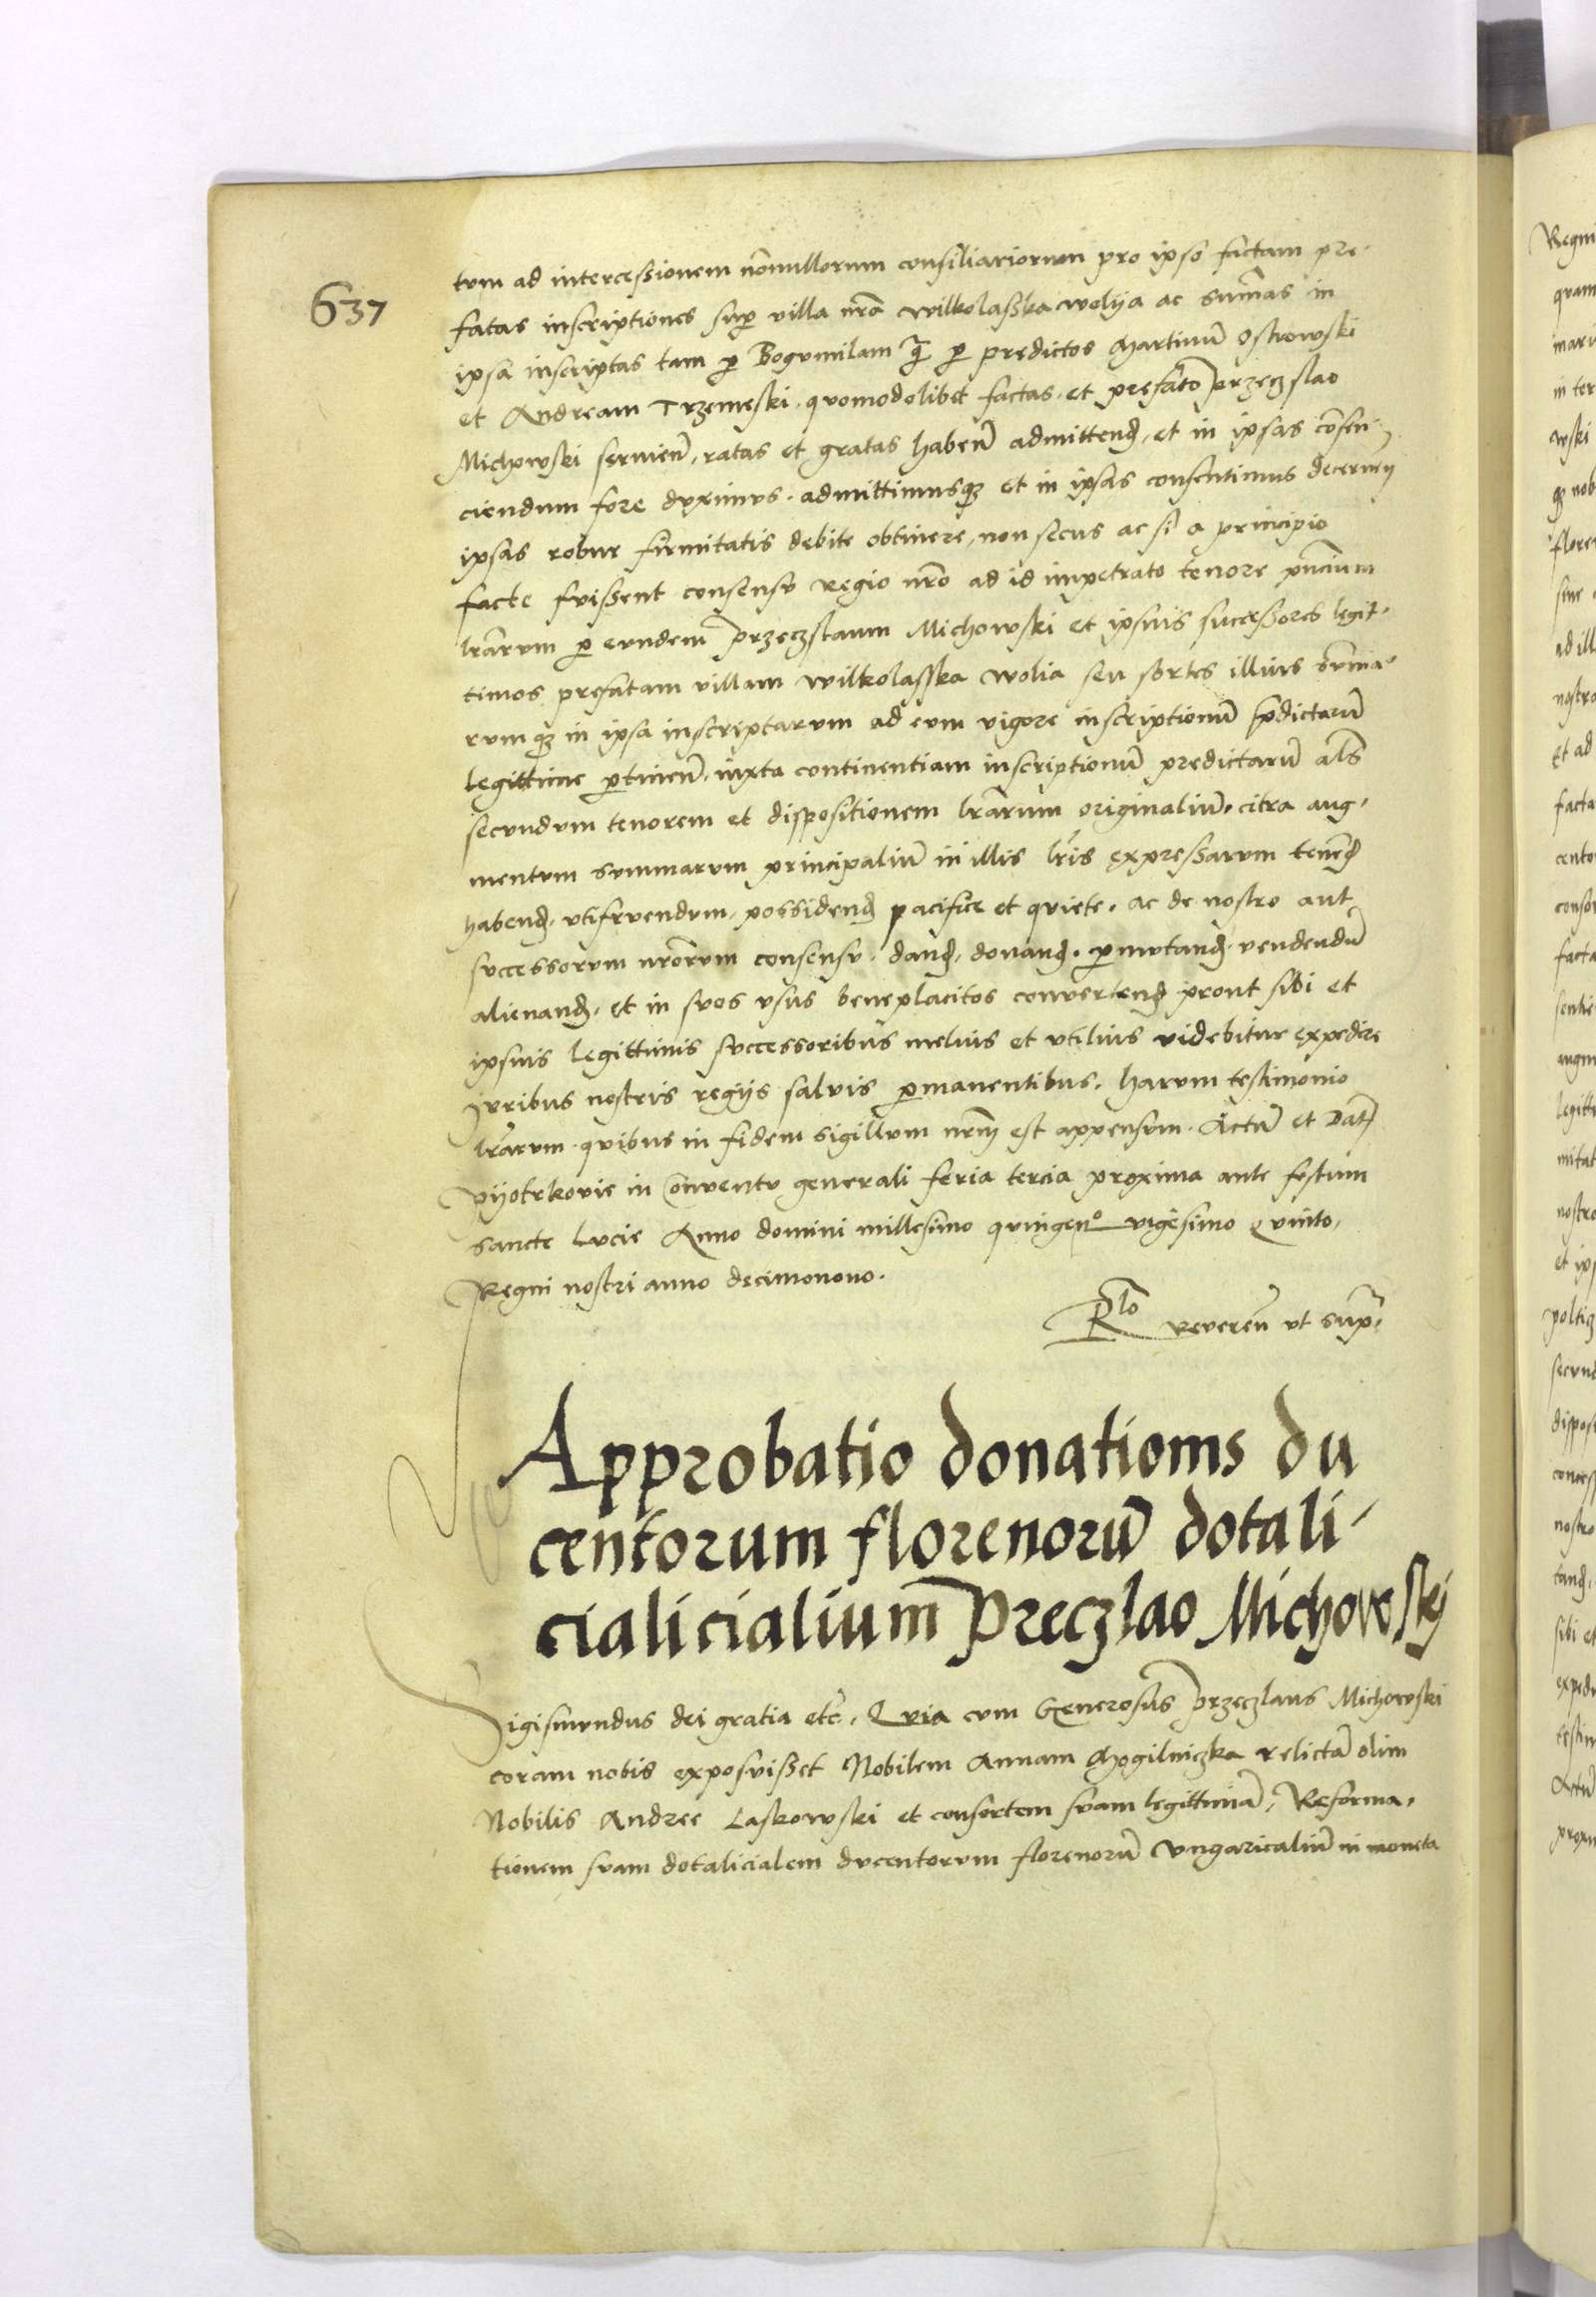 637
tum ad intercessionem nonnullorum consiliariorum pro ipso factam pre-
fatas inscriptiones sup villa nrã wilkolasska wolya ac sum̃as in
ipsa inscriptas tam p Bogumilam q̃ p predictos Martinũ Ostrowski
et Andream Trzemeski quomodolibet factas et prefato przeczslao
Michowski servieñ, ratas et gratas habeñ admittend, et in ipsas cõsen-
ciendum fore duximus. admittimusqz et in ipsas consentimus decerneñ
ipsas robur firmitatis debite obtinere, non secus ac si a principio
facte fuissent consensu regio nrõ ad id impetrato tenore pñcium
lrarum p eundem przeczslaum Michowski et ipsius successores legit-
timos prefatam villam wilkolasska wolia seu sortes illius sũma-
rum qz in ipsa inscriptarum ad eum vigore inscriptionũ pdictarũ
legittime ptineñ, iuxta continentiam inscriptionũ predictarũ als
secundum tenorem et dispositionem lrarum originaliũ, citra aug-
mentum summarum principaliũ in illis lris expressarum tenend
habend, utifruendum, possidend pacifice et quiete. ac de nostro aut
successorum nrõrum consensu, dand, donand, pmutand, vendendũ
alienand, et in suos usus beneplacitos convertend prout sibi et
ipsius legittimis successoribus melius et utilius videbitur expedire
Juribus nostris regijs salvis pmanentibus. harum testimonio
lrarum quibus in fidem sigillum nrm est appensum. Actũ et Dat
pyotrkovie in Conventu generali feria tercia proxima ante festum
sancte Lucie Anno domini millesimo quingenᵒ vigesimo Quinto,
Regni nostri anno decimonono.
Rlo Revereñ ut supᵃ
Approbatio donationis du
centorum florenorũ dotali-
cialicialium Preczlao Michowskj
Sigismundus dei gratia etc̃. Quia cum Generosus przeczlaus Michowski
coram nobis exposuisset Nobilem Annam Mogilniczka relictã olim
Nobilis Andree Laskowski et consortem suam legittimã, Reforma-
tionem suam dotalicialem ducentorum florenorũ Ungaricaliũ in moneta